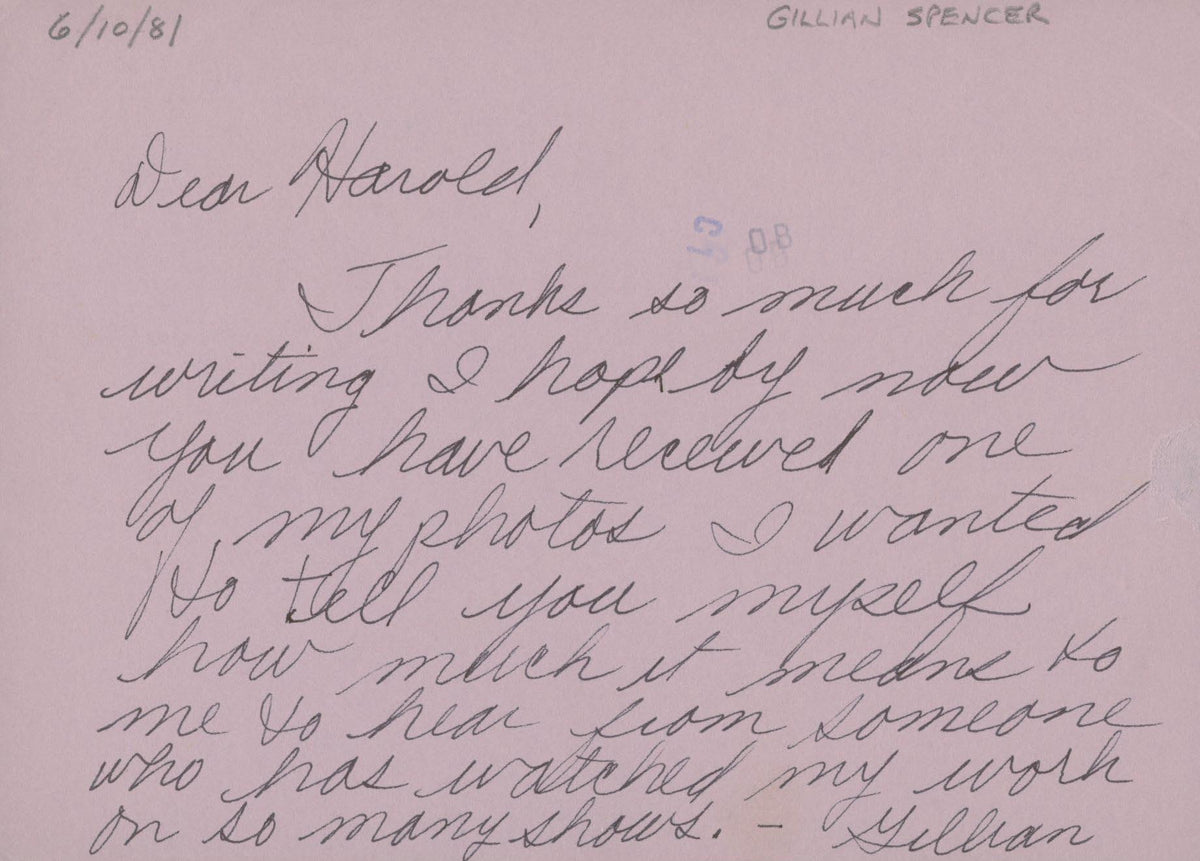 6/10/81 GILLIAN SPENCER
Dear Harold,
Thanks so much for
writing I hope by now
you have received one
of my photos I wanted
to tell you myself
how much it means to
me to hear from someone
who has watched my work
on so many shows. - Gillian